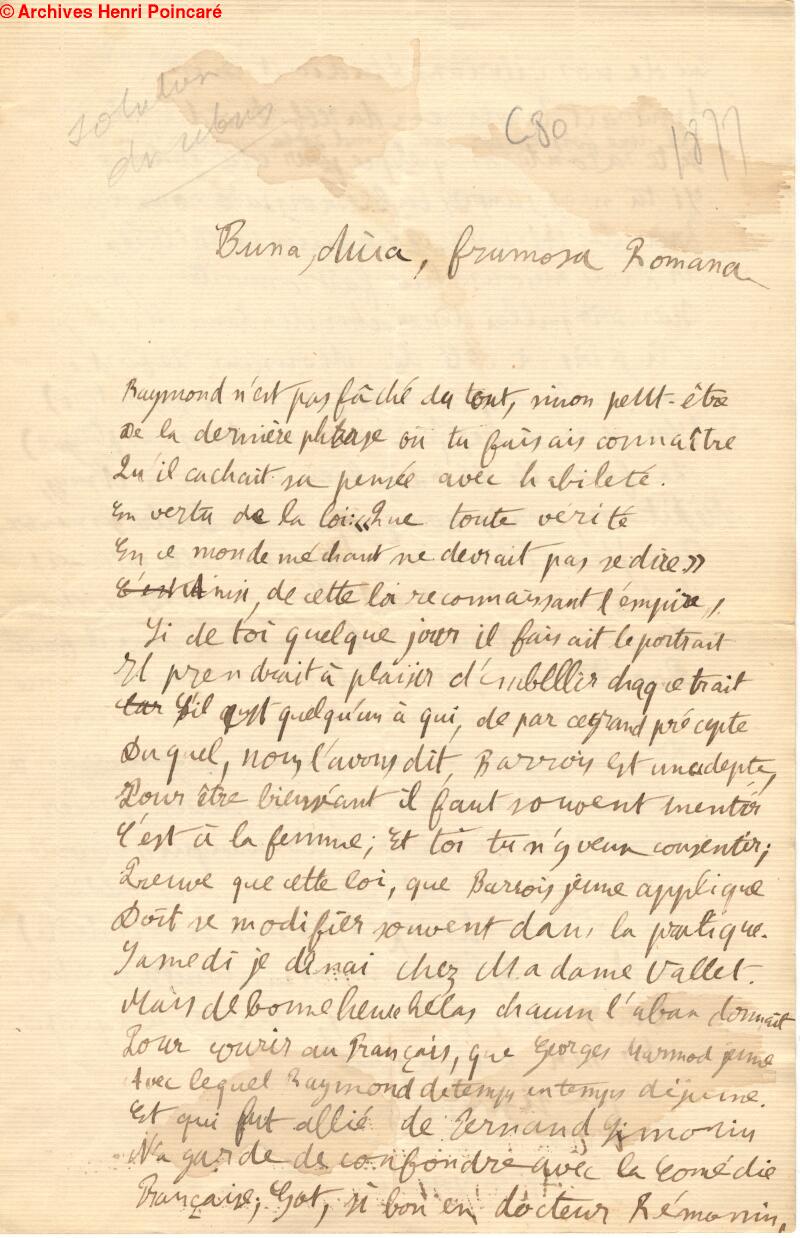 © Archives Henri Poincaré
solution
du rebus
C80
1877
Buna, frumosa Romana
Raymond n'est pas fâché du tout, sinon peut-être
De la dernière phrase où tu faisais connaître
Qu'il cachait sa pensée avec habileté.
En vertu de la loi: «Que toute vérité
En ce monde méchant ne devrait pas se dire»
C'est Ainsi, de cette loi reconnaissant l'empire,
Si de toi quelque jour il faisait le portrait
Il prendrait à plaisir d'embellir chaque trait
Car S'il est quelqu'un à qui, de par ce grand précepte
Duquel, nous l'avons dit, Barrois est un adepte,
Pour être bienséant il faut souvent mentir
C'est à la femme; Et toi tu n'y veux consentir;
Preuve que cette loi, que Barrois jeune applique
Doit se modifier souvent dans la pratique.
Samedi je dinai chez Madame Vallet.
Mais de bonne heure hélas chacun l'abandonnait
Pour courir au Français, que Georges jeune
Avec lequel Raymond de temps en temps déjeune.
Et qui fut allié de Fernand
N'a garde de confondre avec la Comédie
Française; Got, si bon en docteur Rémonin,